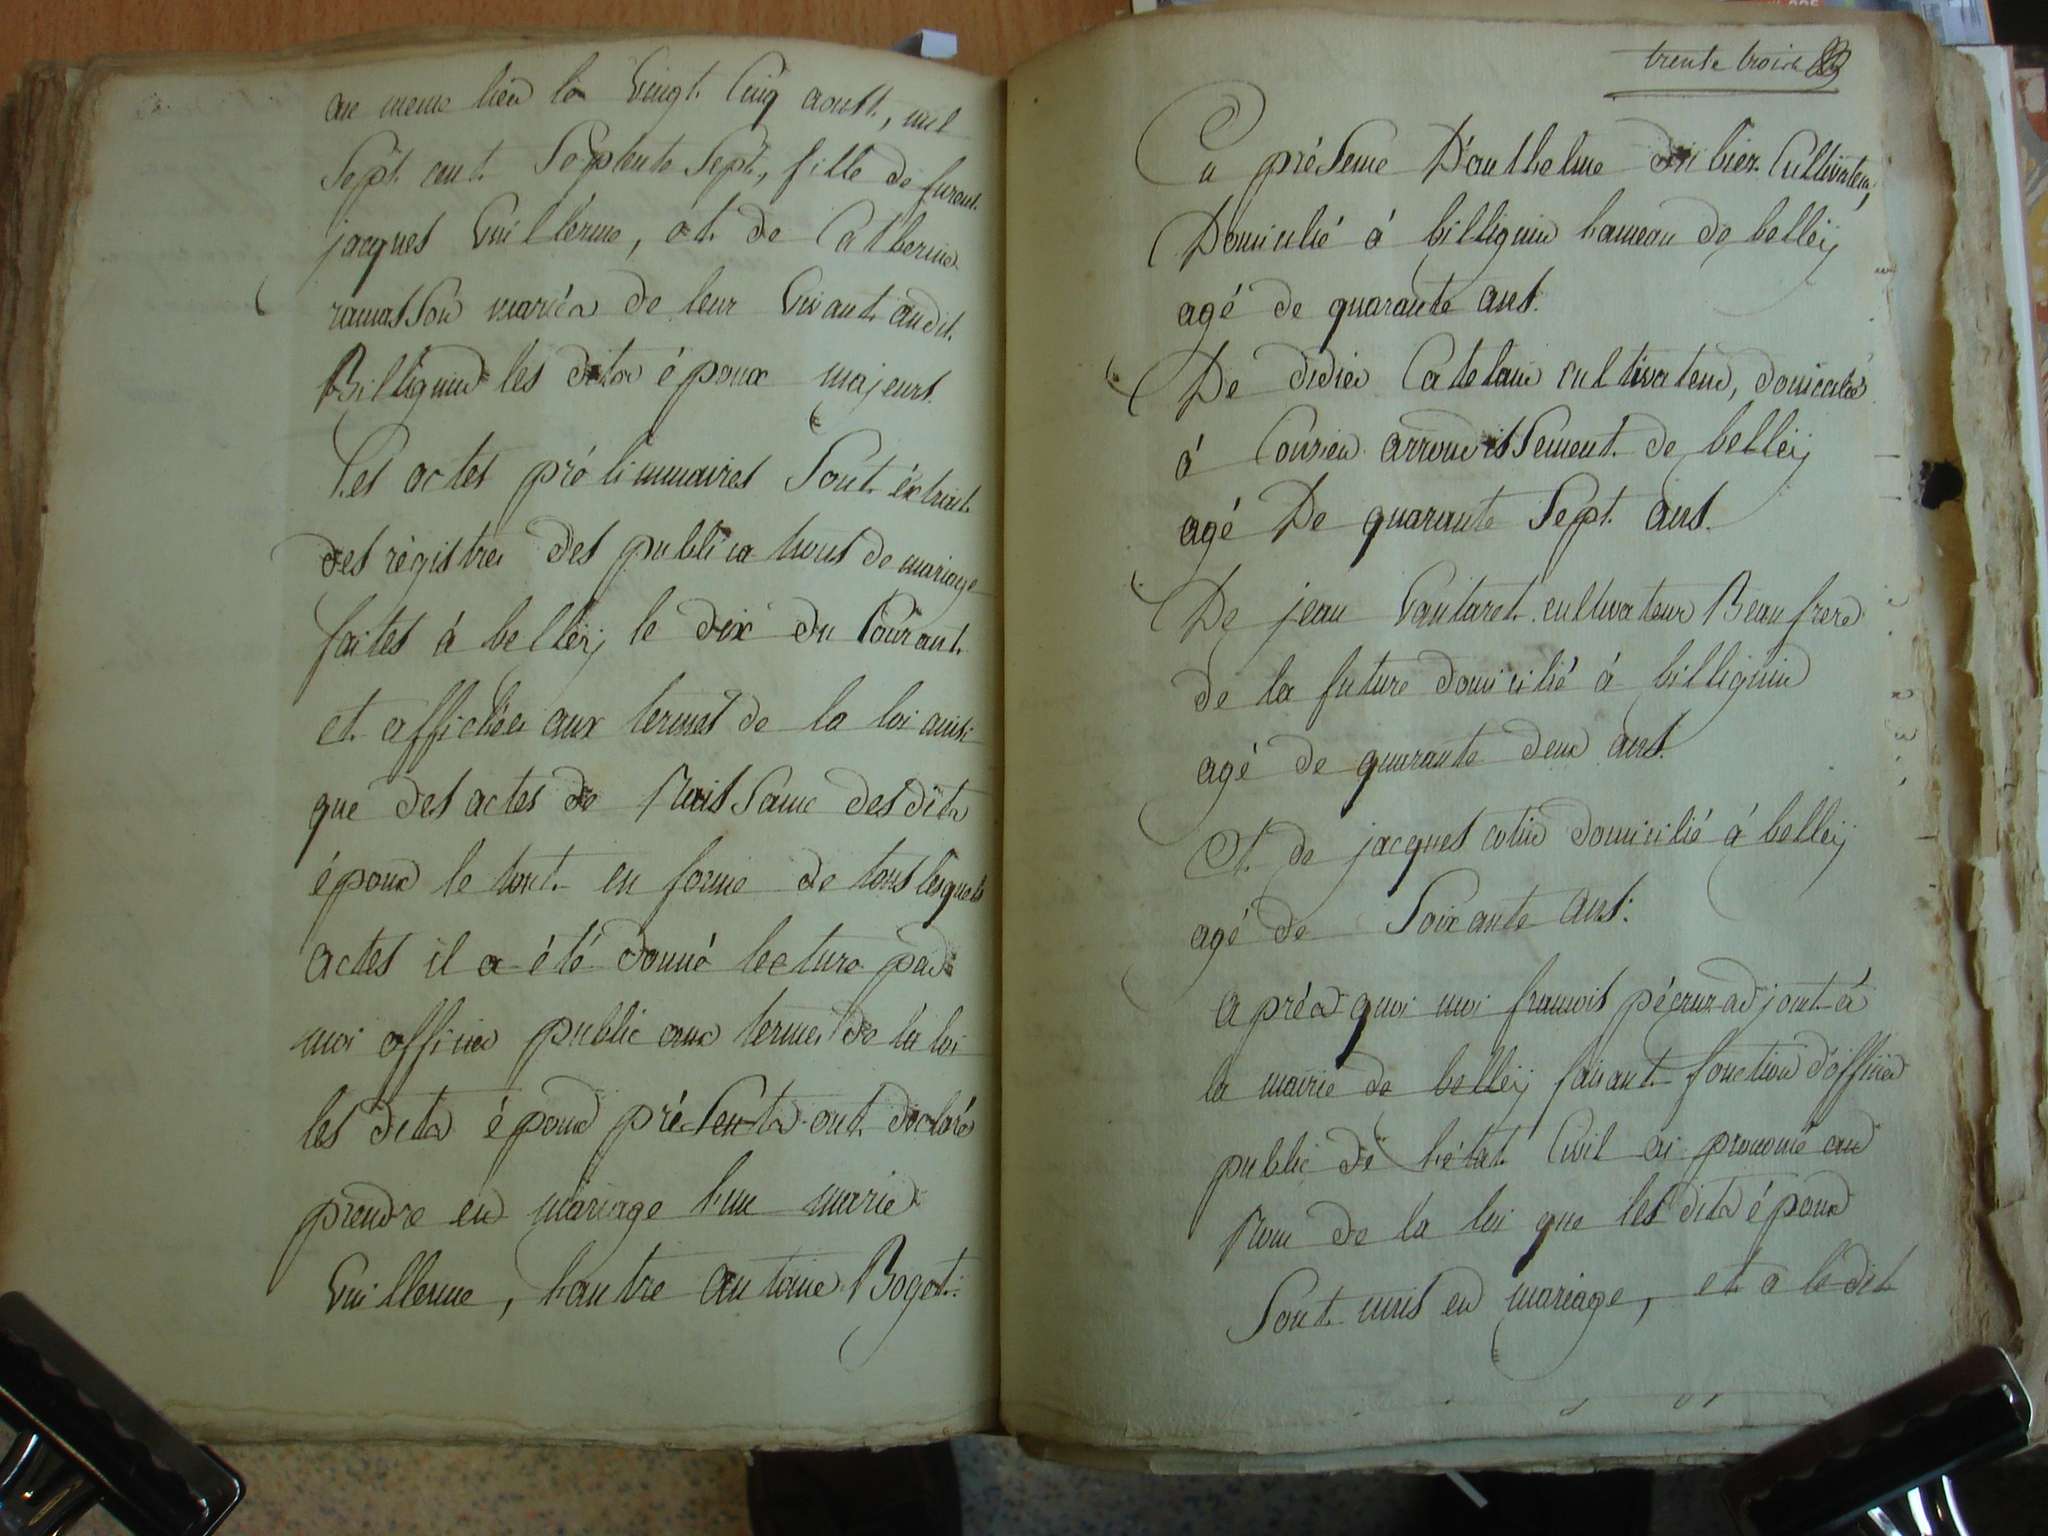 au meme lieu le vingt cinq aoust, mil
Sept cent Septente Sept, fille de furent
jacques Guillerme, et de Catherine
ramasson mariés de leur vivant audit
Billignin les dits époux majeurs.
Les actes préliminaires Sont éxtraits
des régistres des publications de mariage
faites à belleÿ le dix du Courant
et affichées aux termes de la loi ainsi
que des actes de Naissance desdits
époux le tout en forme de tous lesquels
actes il a été donné lecture par
moi officier public aux termes de la loi
les dits époux présents ont déclaré
prendre en mariage l'une marie
Guillerme, l'autre antoine Bogot.
trente trois
En présence D'anthelme cultivateur,
Domicilié à billignin hameau de belleÿ
agé de quarante ans.
De didier Catelain cultivateur, domicilié
à Conzieu arrondissement de belleÿ
agé De quarante Sept ans.
De jean Gautaret cultivateur Beau frere
de la future domicilié à billignin
agé de quarante deux ans.
Et de jacques cotin domicilié à belleÿ
agé de Soixante ans.
après quoi moi francois adjoint à
la mairie de belleÿ faisant fonction d'officier
public de l'état Civil ai prononcé au
Nom de la loi que les dits époux
Sont unis en mariage, et a le dit